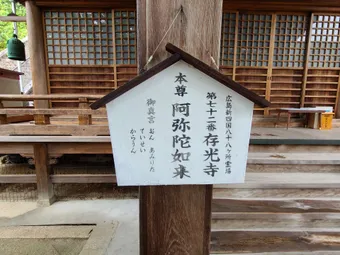 広島新四国八十八ヶ所霊場
第七十二番 存光寺
本尊 阿弥陀如来
御真言
おん あみりた
ていせい
からうん